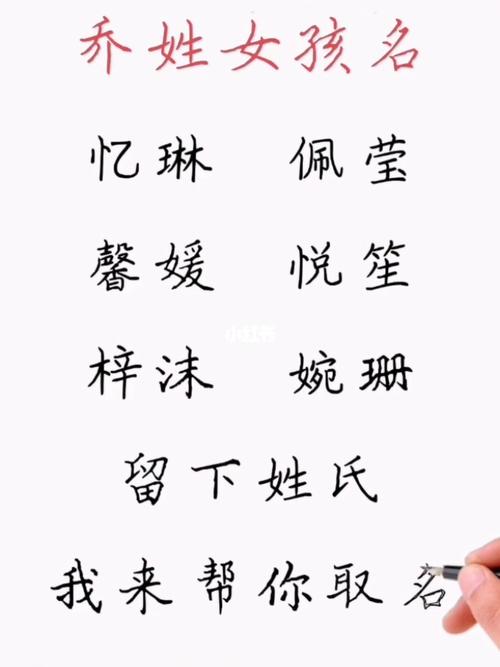 乔姓女孩名
忆琳 佩莹
馨媛 悦笙
小红书
梓沫 婉珊
留下姓氏
我来帮你取名